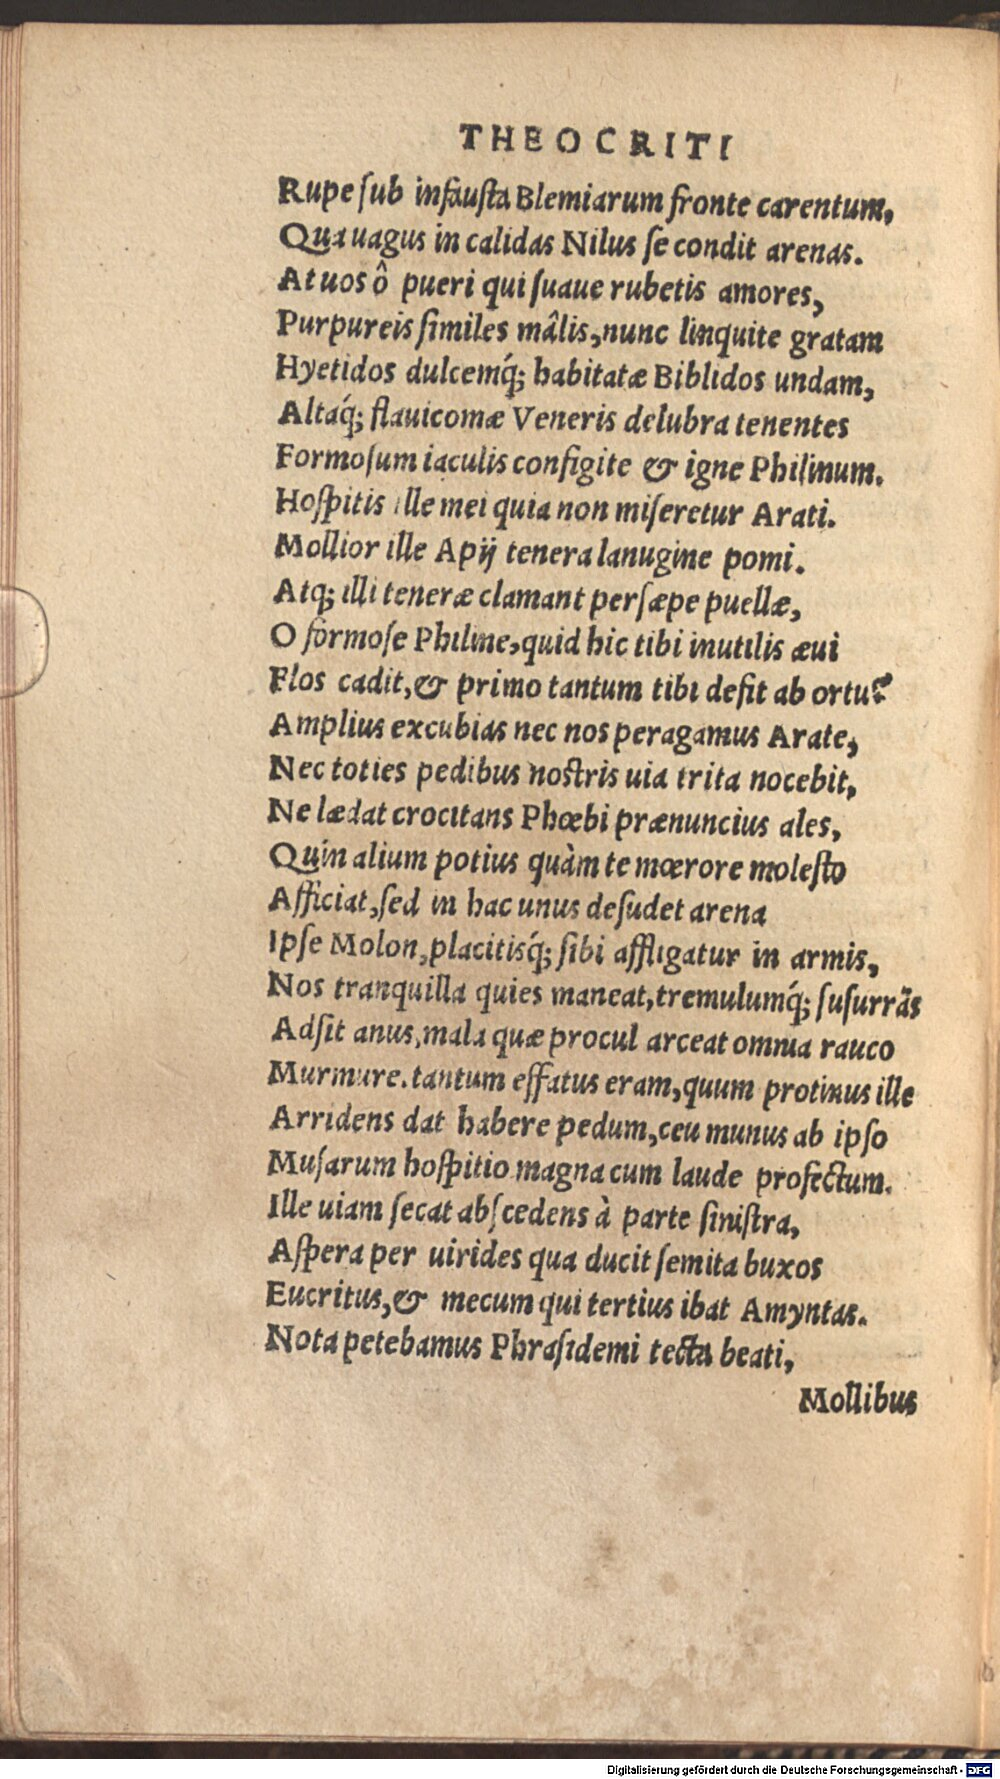 THEOCRITI
Rupe ſub infauſta Blemiarum fronte carentum,
Qua uagus in calidas Nilus ſe condit arenas.
At uos ô pueri qui ſuaue rubetis amores,
Purpureis ſimiles mâlis, nunc linquite gratam
Hyetidos dulcemq́; habitatæ Biblidos undam,
Altaq́; flauicomæ Veneris delubra tenentes
Formoſum iaculis configite & igne Philinum.
Hoſpitis ille mei quia non miſeretur Arati.
Mollior ille Apij tenera lanugine pomi.
Atq; illi teneræ clamant perſæpe puellæ,
O formoſe Philine, quid hic tibi inutilis æui
Flos cadit, & primo tantum tibi deſit ab ortu?
Amplius excubias nec nos peragamus Arate,
Nec toties pedibus nostris uia trita nocebit,
Ne lædat crocitans Phœbi prænuncius ales,
Quin alium potius quàm te mœrore moleſto
Afficiat, ſed in hac unus deſudet arena
Ipſe Molon, placitisq́; ſibi affligatur in armis,
Nos tranquilla quies maneat, tremulumq́; ſuſurrãs
Adſit anus, mala quæ procul arceat omnia rauco
Murmure. tantum effatus eram, quum protinus ille
Arridens dat habere pedum, ceu munus ab ipſo
Muſarum hoſpitio magna cum laude profectum.
Ille uiam ſecat abſcedens à parte ſiniſtra,
Aſpera per uirides qua ducit ſemita buxos
Eucritus, & mecum qui tertius ibat Amyntas.
Nota petebamus Phraſidemi tecta beati,
Mollibus
Digitalisierung gefördert durch die Deutsche Forschungsgemeinschaft - DFG